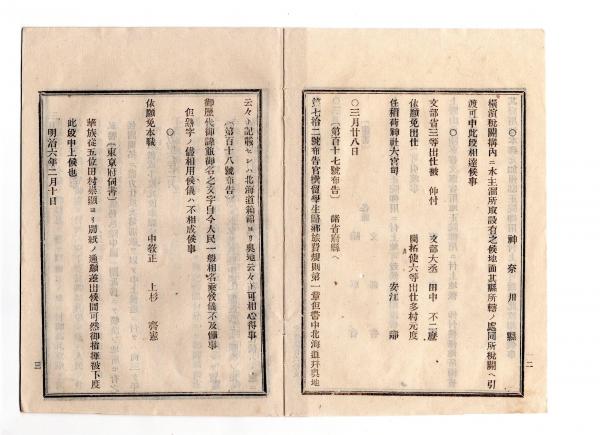 ○　神奈川縣
橫濱稅關構內ニ水主溜所取設有之候地面其縣所轄ノ處同所稅關ヘ引
渡可申此段相達候事
○
文部省三等出仕被　仰付　文部大丞　田中　不二麿
依願免出仕　開拓使六等出仕多村元度
任稻荷神社大宮司　安江
○三月廿八日
○〔第百十七號布告〕　諸省府縣ヘ
第七拾二號布告官撰留學生歸鄉旅費規則第一章但書中北海道幷奥地
云々ト記載セシハ北海道箱館ヨリ奥地云々ト可相心得事
〔第百十八號布告〕
御歷代御諱並御名之文字自今人民一般相名乘候儀不及憚事
但熟字ノ儘相用候儀ハ不相成候事
○
依願免本職　中敎正　上杉　齊憲
○　〔東京府伺書〕
華族從五位田村崇顯ヨリ別紙ノ通願差出候間可然御指揮被下度
此段申上候也
明治六年二月十日
二
三